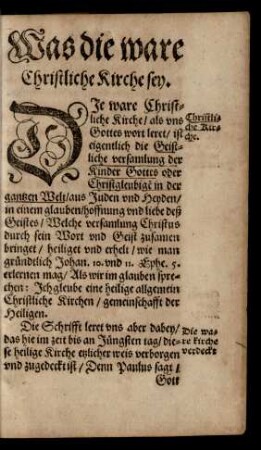 Was die ware
Christliche Kirche sey.
DIe ware Christ-
liche Kirche/ als vns
Gottes wort leret/ ist
eigentlich die Geist-
liche versamlung der
Kinder Gottes oder
Christgleubigē in der
gantzen Welt/aus Juden vnd Heyden/
in einem glauben/hoffnung vnd liebe deß
Geistes/ Welche versamlung Christus
durch sein Wort vnd Geist zusamen
bringet/ heiliget vnd erhelt/ wie man
gründtlich Johan. 10. vnd 11. Ephe. 5.
erlernen mag/ Als wir im glauben spre-
chen: Ich glaube eine heilige allgemein
Christliche Kirchen/ gemeinschafft der
Heiligen.
Die Schrifft leret vns aber dabey/
das hie im zeit bis an Jüngsten tag/ die-
se heilige Kirche etzlicher weis verborgen
vnd zugedeckt ist/ Denn Paulus sagt/
Gott
Christli-
che Kir-
che.
Die wa-
re kirche
verdeckt